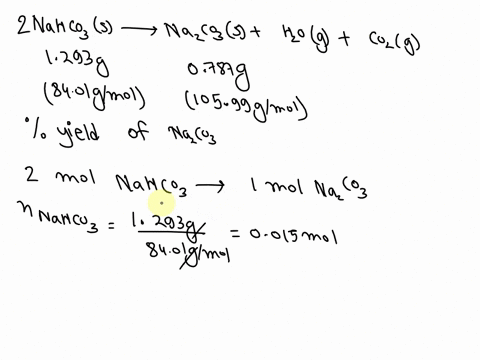 2NaHCO3(s) ⟶ Na2CO3(s) + H2O(g) + CO2(g)
1.293g 0.787g
(84.01g/mol) (105.99g/mol)
% yield of Na2CO3
2 mol NaHCO3 ⟶ 1 mol Na2CO3
nNaHCO3 = 1.293g / 84.01g/mol = 0.015mol